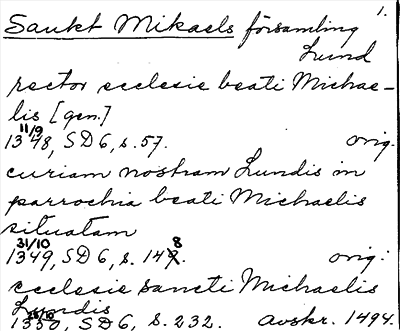 1.
Sankt Mikaels församling
Lund
rector ecclesie beati Michae-
lis [gen.]
11/9
1348, SD 6, s. 57. orig.
curiam nostram Lundis in
parrochia beati Michaelis
situatam
31/10
1349, SD 6, s. 148. orig.
ecclesie sancti Michaelis
Lundis
1350, SD 6, s. 232. avskr. 1494.